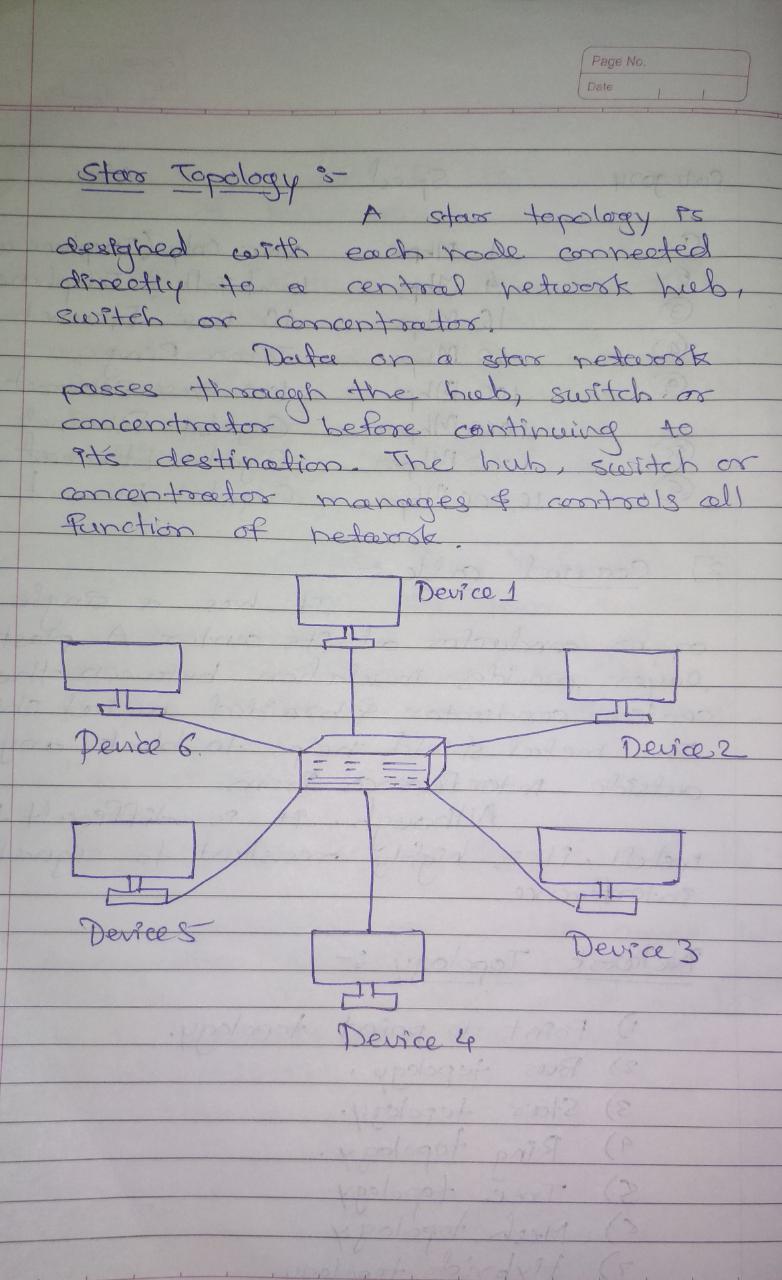 Page No.
Date
Star Topology :-
A star topology is
designed with each node connected
directly to a central network hub,
switch or concentrator.
Data on a star network
passes through the hub, switch or
concentrator before continuing to
its destination. The hub, switch or
concentrator manages & controls all
function of network.
Device 1
Device 6
Device 2
Device 5
Device 3
Device 4